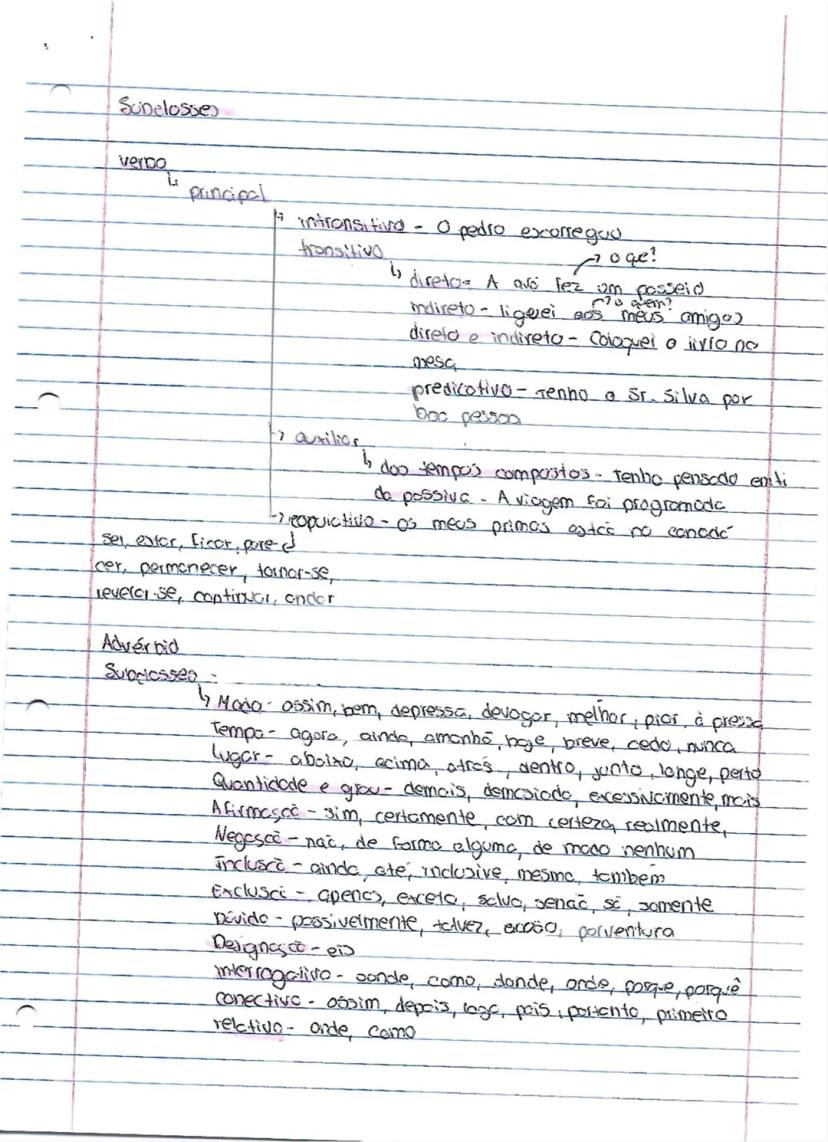 Subclasses
verbo
↳ principal
↳ intransitivo - O pedro escorregou
transitivo
→ o que?
↳ direto - A avó fez um passeio
→ a quem?
indireto - liguei aos meus amigos
direto e indireto - Coloquei o livro na
mesa
predicativo - Tenho o Sr. Silva por
boa pessoa
→ auxiliar
↳ dos tempos compostos - Tenho pensado em ti
da passiva - A viagem foi programada
→ copulativo - os meus primos estão no canadá
ser, estar, ficar, pare-
cer, permanecer, tornar-se,
revelar-se, continuar, andar
Advérbio
Subclasses :
↳ Modo - assim, bem, depressa, devagar, melhor, pior, à pressa
Tempo - agora, ainda, amanhã, hoje, breve, cedo, nunca
Lugar - abaixo, acima, atrás, dentro, junto, longe, perto
Quantidade e grau - demais, demasiado, excessivamente, mais
Afirmação - sim, certamente, com certeza, realmente,
Negação - não, de forma alguma, de modo nenhum
Inclusão - ainda, até, inclusive, mesmo, também
Exclusão - apenas, exceto, salvo, senão, só, somente
Dúvida - possivelmente, talvez, acaso, porventura
Designação - eis
interrogativo - aonde, como, donde, onde, porque, porquê
conectivo - assim, depois, logo, pois, portanto, primeiro
relativo - onde, como